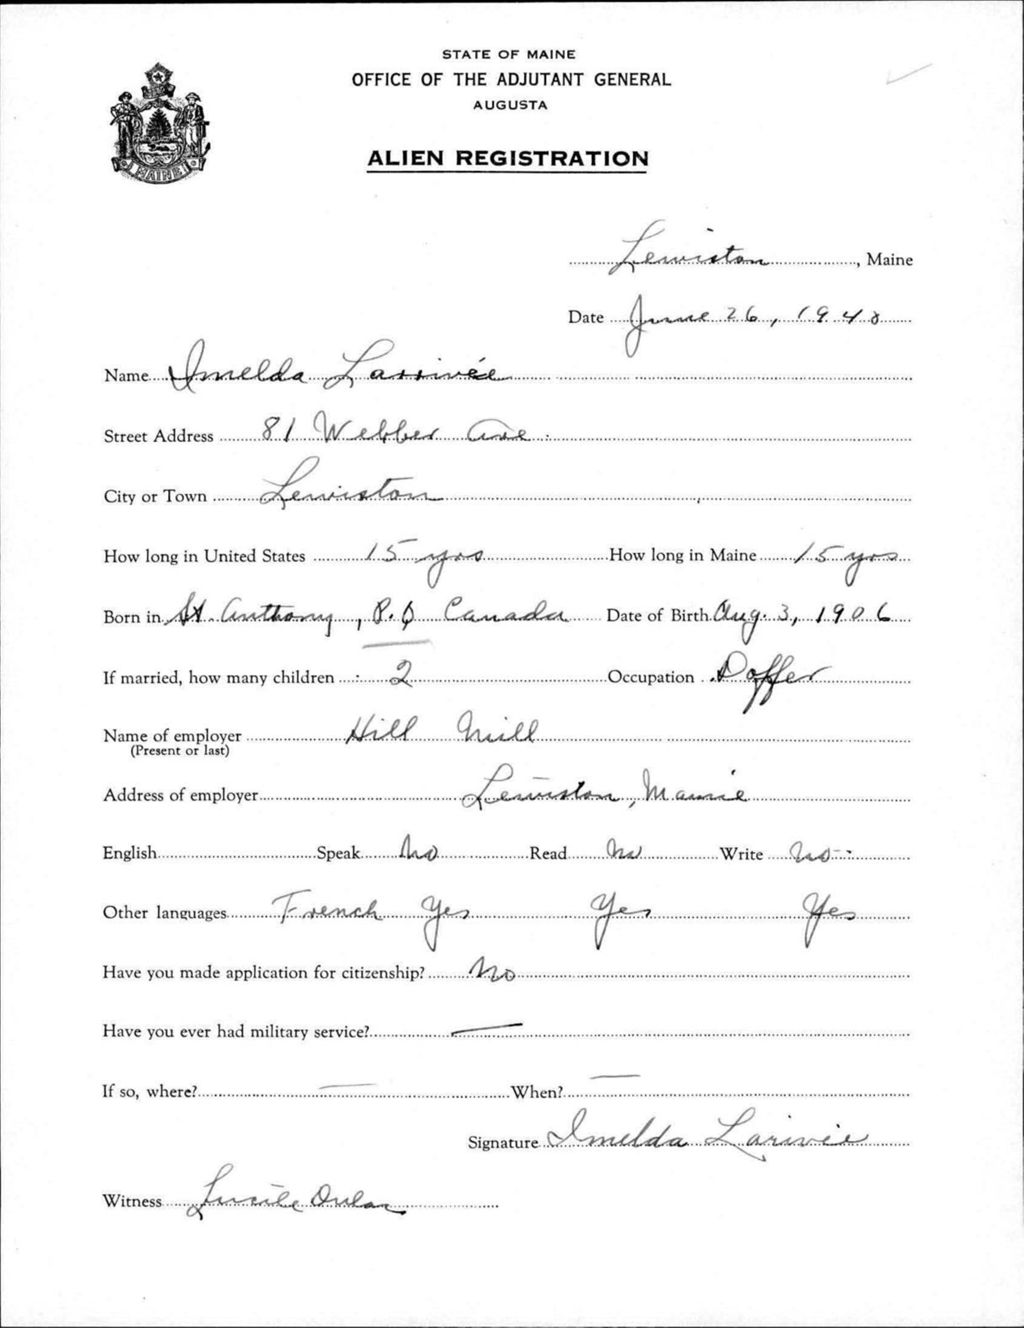 STATE OF MAINE
OFFICE OF THE ADJUTANT GENERAL
AUGUSTA
ALIEN REGISTRATION
MAINE
Lewiston, Maine
Date June 26, 1940
Name Imelda Larrivée
Street Address 81 Webber Ave.
City or Town Lewiston
How long in United States 15 yrs How long in Maine 15 yrs
Born in St. Anthony, P.Q Canada Date of Birth Aug. 3, 1906
If married, how many children 2 Occupation Doffer
Name of employer Hill Mill
(Present or last)
Address of employer Lewiston, Maine
English Speak No Read No Write No
Other languages French Yes Yes Yes
Have you made application for citizenship? No
Have you ever had military service? —
If so, where? — When? —
Signature Imelda Larivée
Witness Lucile